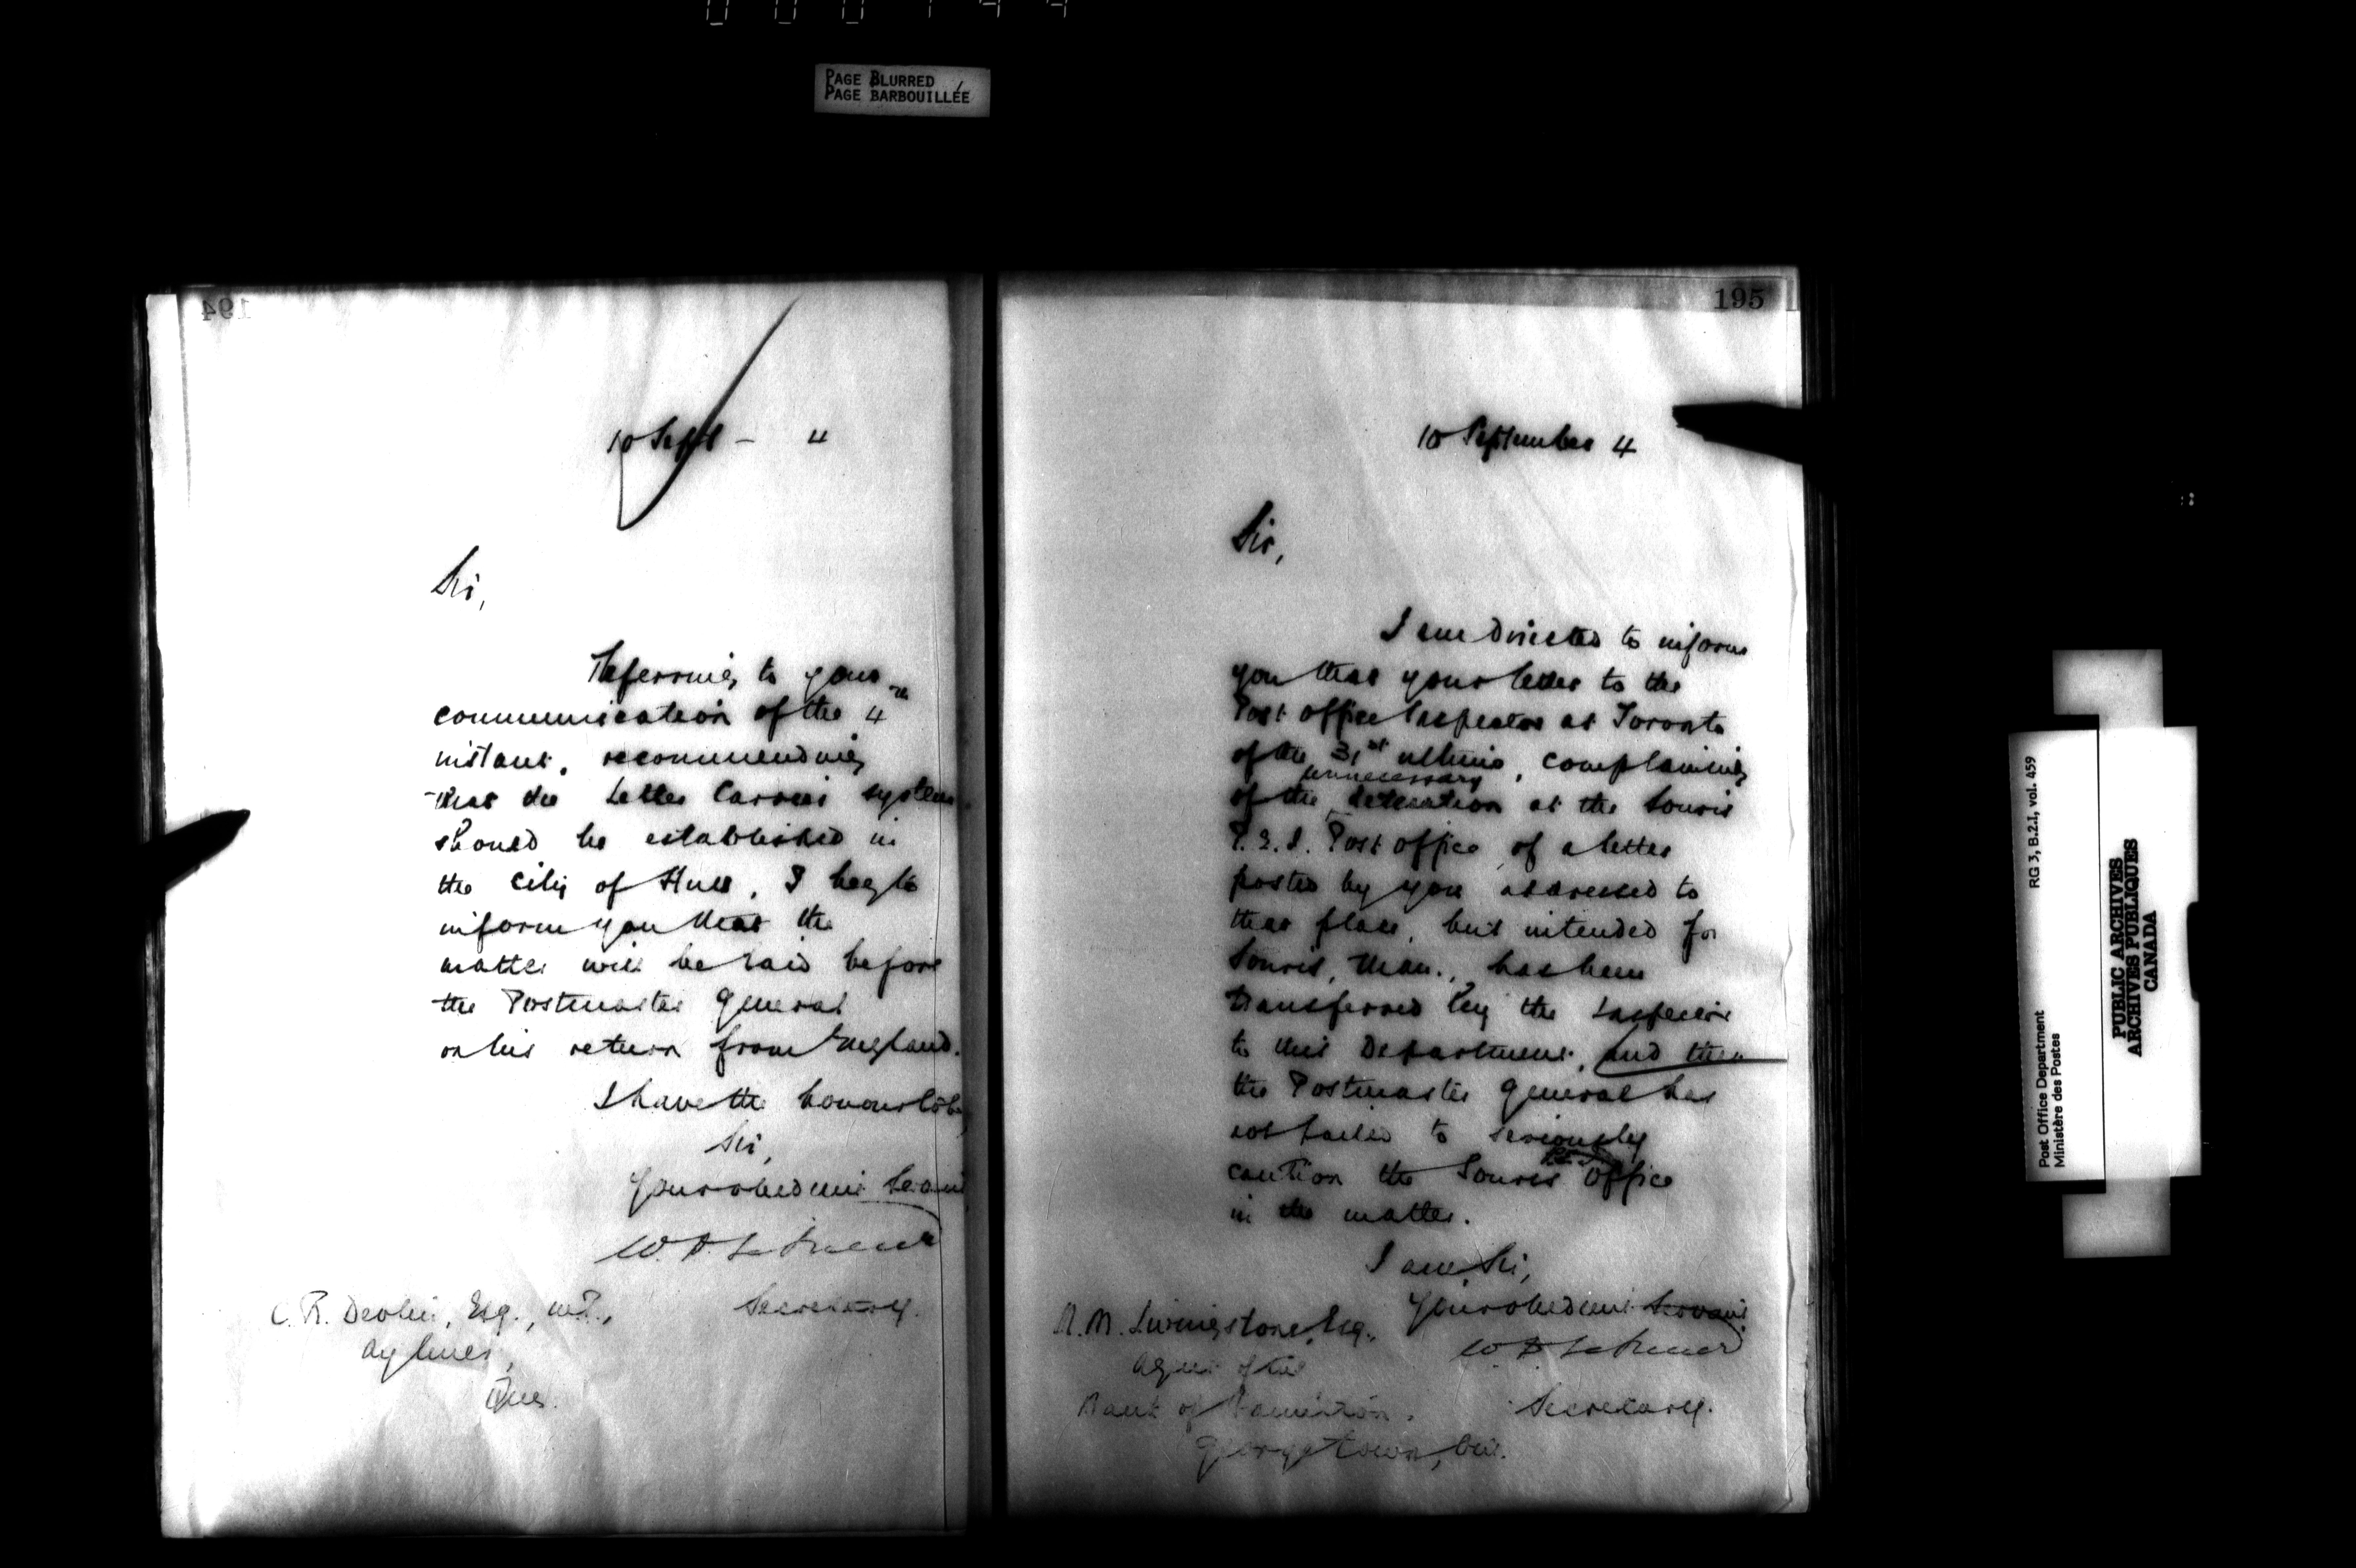 PAGE BLURRED
PAGE BARBOUILLÉE
194
10 Sept - 4
Sir,
Referring to your
communication of the 4th
instant, recommending
that the Letter Carrier system
should be established in
the City of Hull, I beg to
inform you that the
matter will be laid before
the Postmaster General
on his return from England.
I have the honour to be,
Sir,
Your obedient Servant
W. D. LeSueur
Secretary.
C. R. Devlin, Esq., M.P.,
Aylmer,
Que.
195
10 September 4
Sir,
I am directed to inform
you that your letter to the
Post Office Inspector at Toronto
of the 31st ultimo, complaining
unnecessary
of the detention at the Souris
P. E. I. Post office, of a letter
posted by you addressed to
that place, but intended for
Souris, Man., has been
transferred by the Inspector
to this Department, and
the Postmaster General has
not failed to seriously
P.E.I.
caution the Souris Office
in the matter.
I am, Sir,
Your obedient Servant
W. D. LeSueur
Secretary.
Livingstone, Esq.,
Agent of the
Bank of Hamilton,
Georgetown, Ont.
Post Office Department RG 3, B.2.I, vol. 459
Ministère des Postes
PUBLIC ARCHIVES
ARCHIVES PUBLIQUES
CANADA